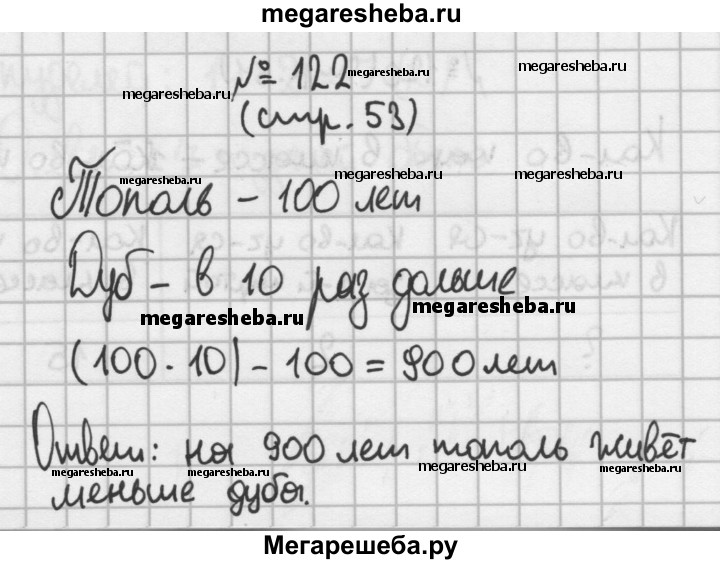 megaresheba.ru
№ 122
megaresheba.ru
megaresheba.ru
(стр. 53)
megaresheba.ru
megaresheba.ru
Тополь - 100 лет
Дуб - в 10 раз дальше
megaresheba.ru
megaresheba.ru
(100 · 10) - 100 = 900 лет
Ответ: на 900 лет тополь живёт
megaresheba.ru megaresheba.ru megaresheba.ru megaresheba.ru
меньше дуба.
Мегарешеба.ру